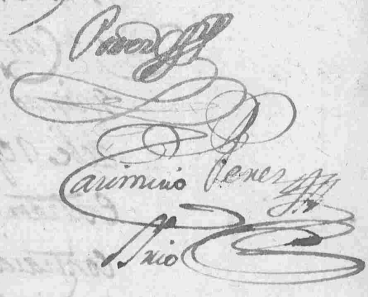 Perez
Casimiro Perez
Srio